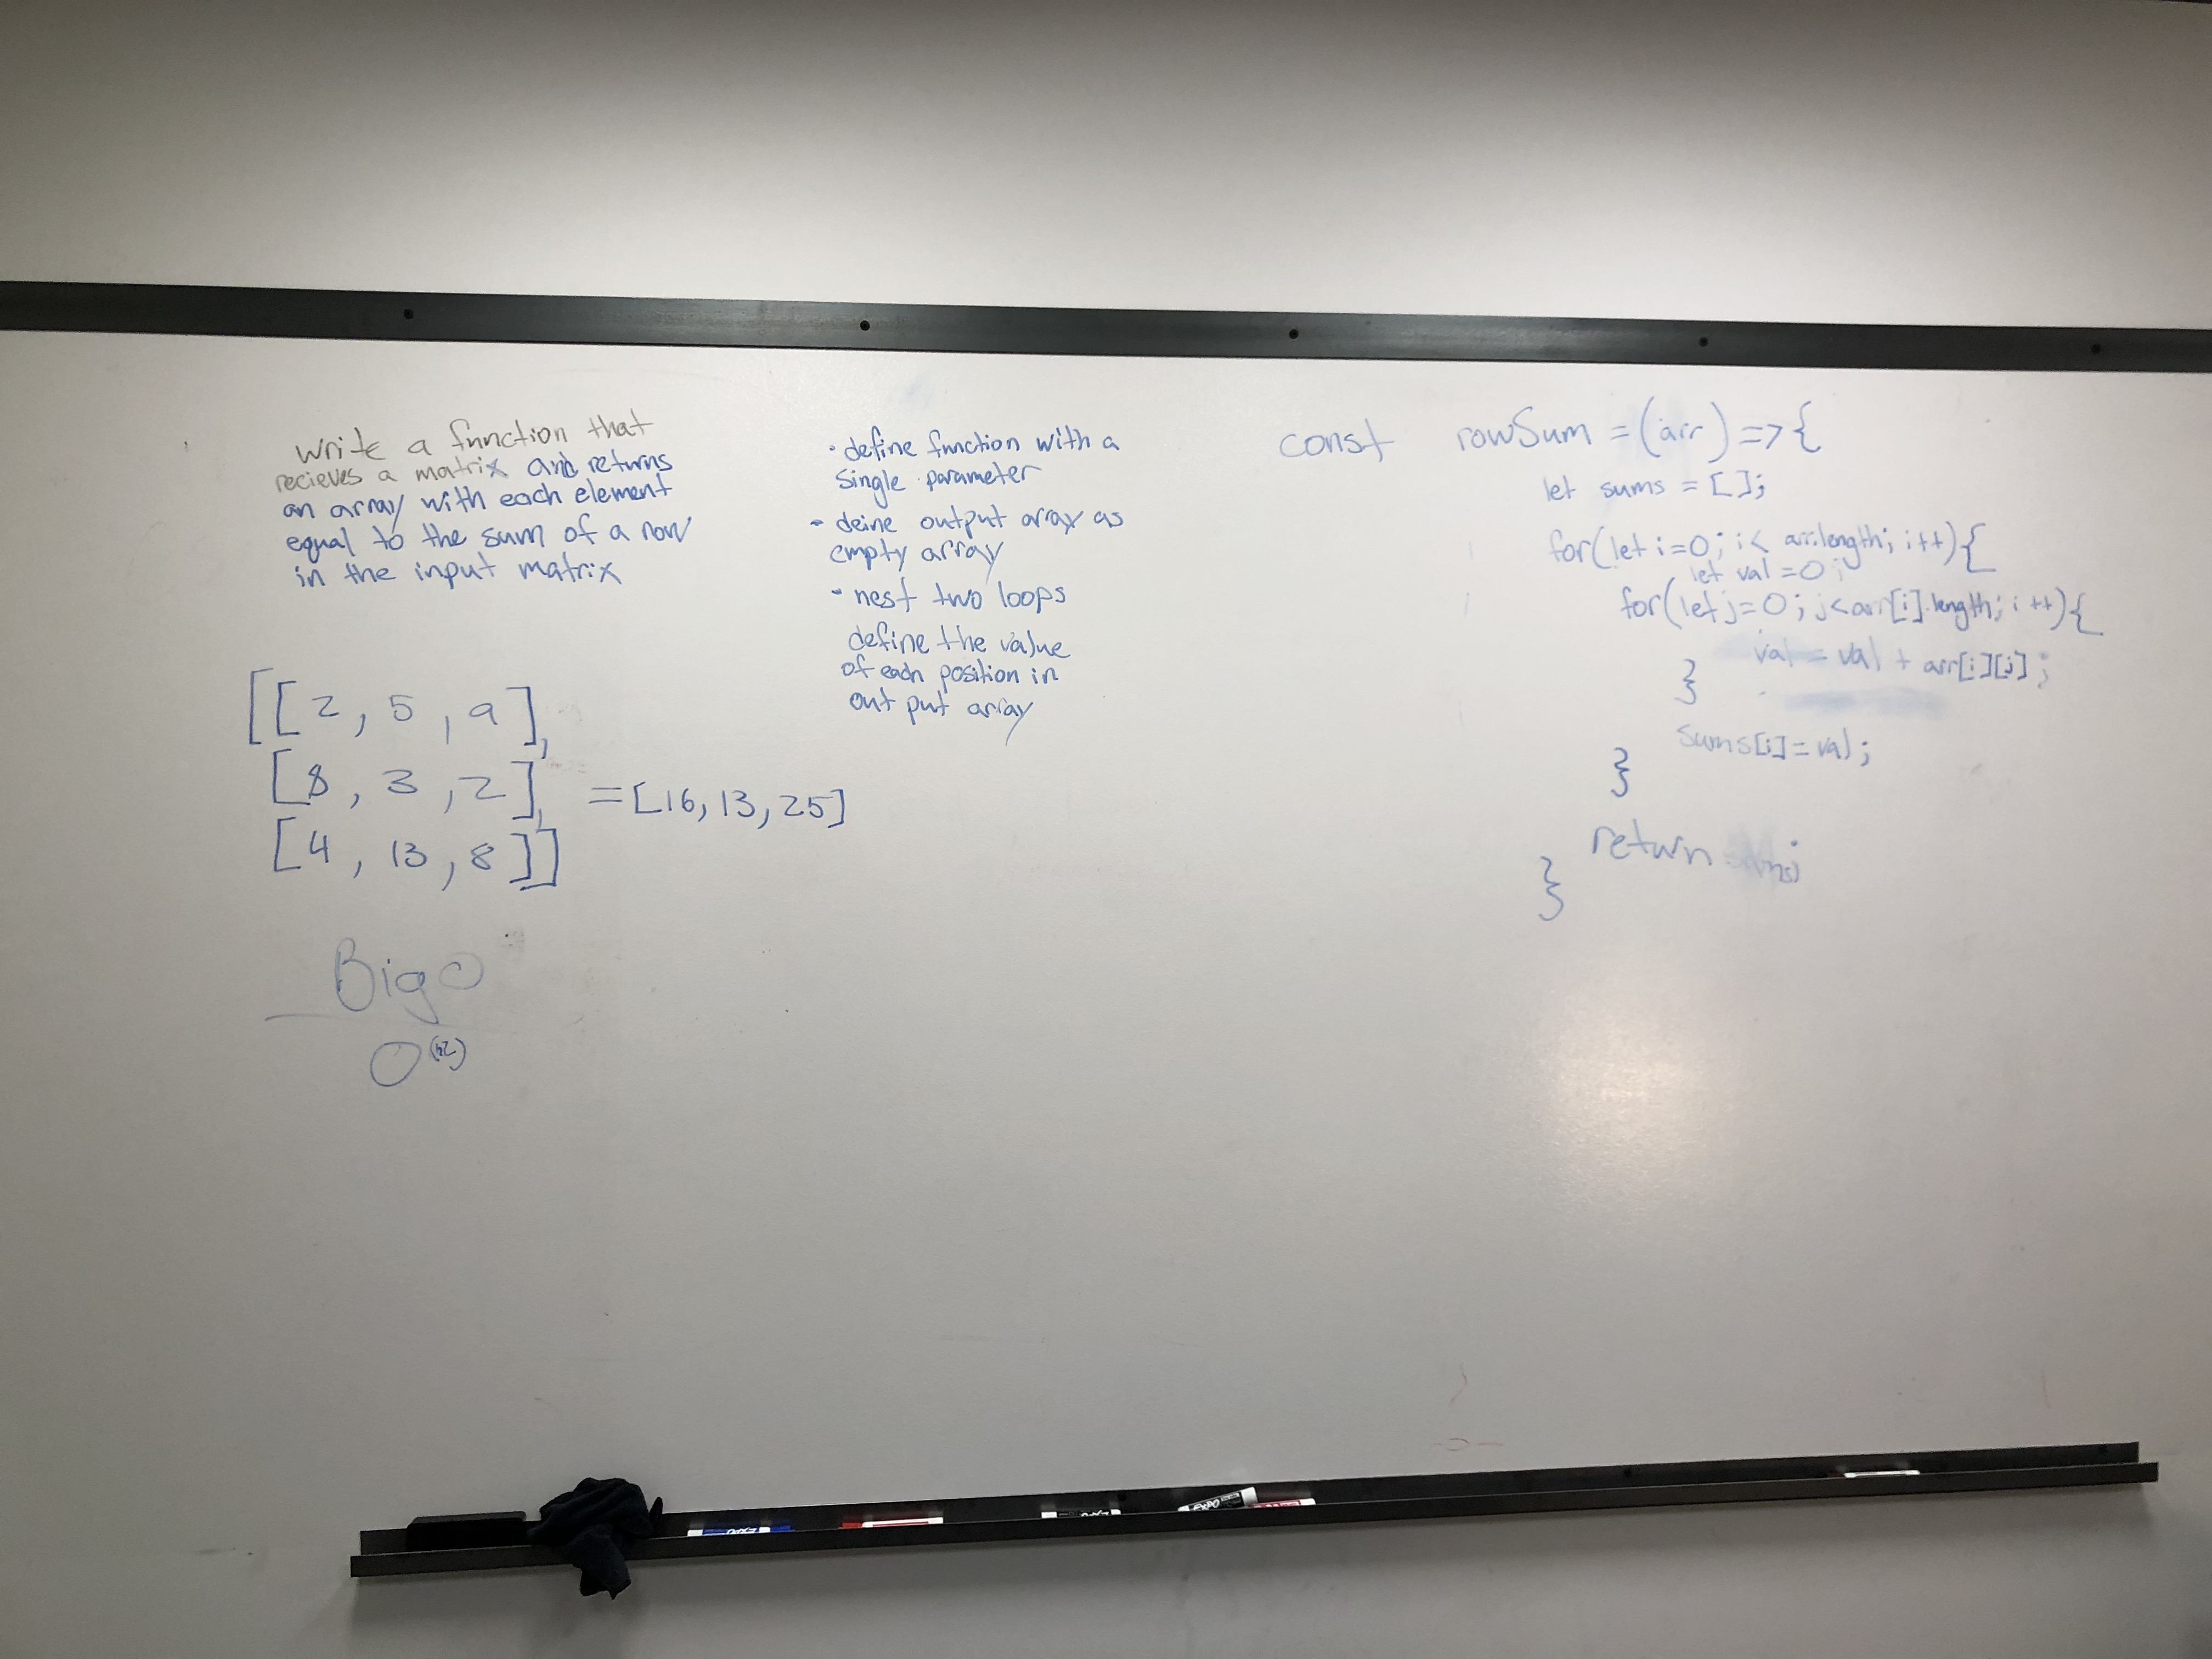 write a function that
recieves a matrix and returns
an array with each element
equal to the sum of a row
in the input matrix
[[2, 5, 9],
[8, 3, 2],
[4, 13, 8]]
=[16, 13, 25]
Big O
O(n2)
- define function with a
single parameter
- deine output array as
empty array
- nest two loops
define the value
of each position in
out put array
const rowSum = (arr) => {
let sums = [];
for(let i=0; i< arr.length; i++){
let val = 0;
for(let j=0; j<arr[i].length; i++){
val = val + arr[i][j];
}
sums[i] = val;
}
return
}
EXPO